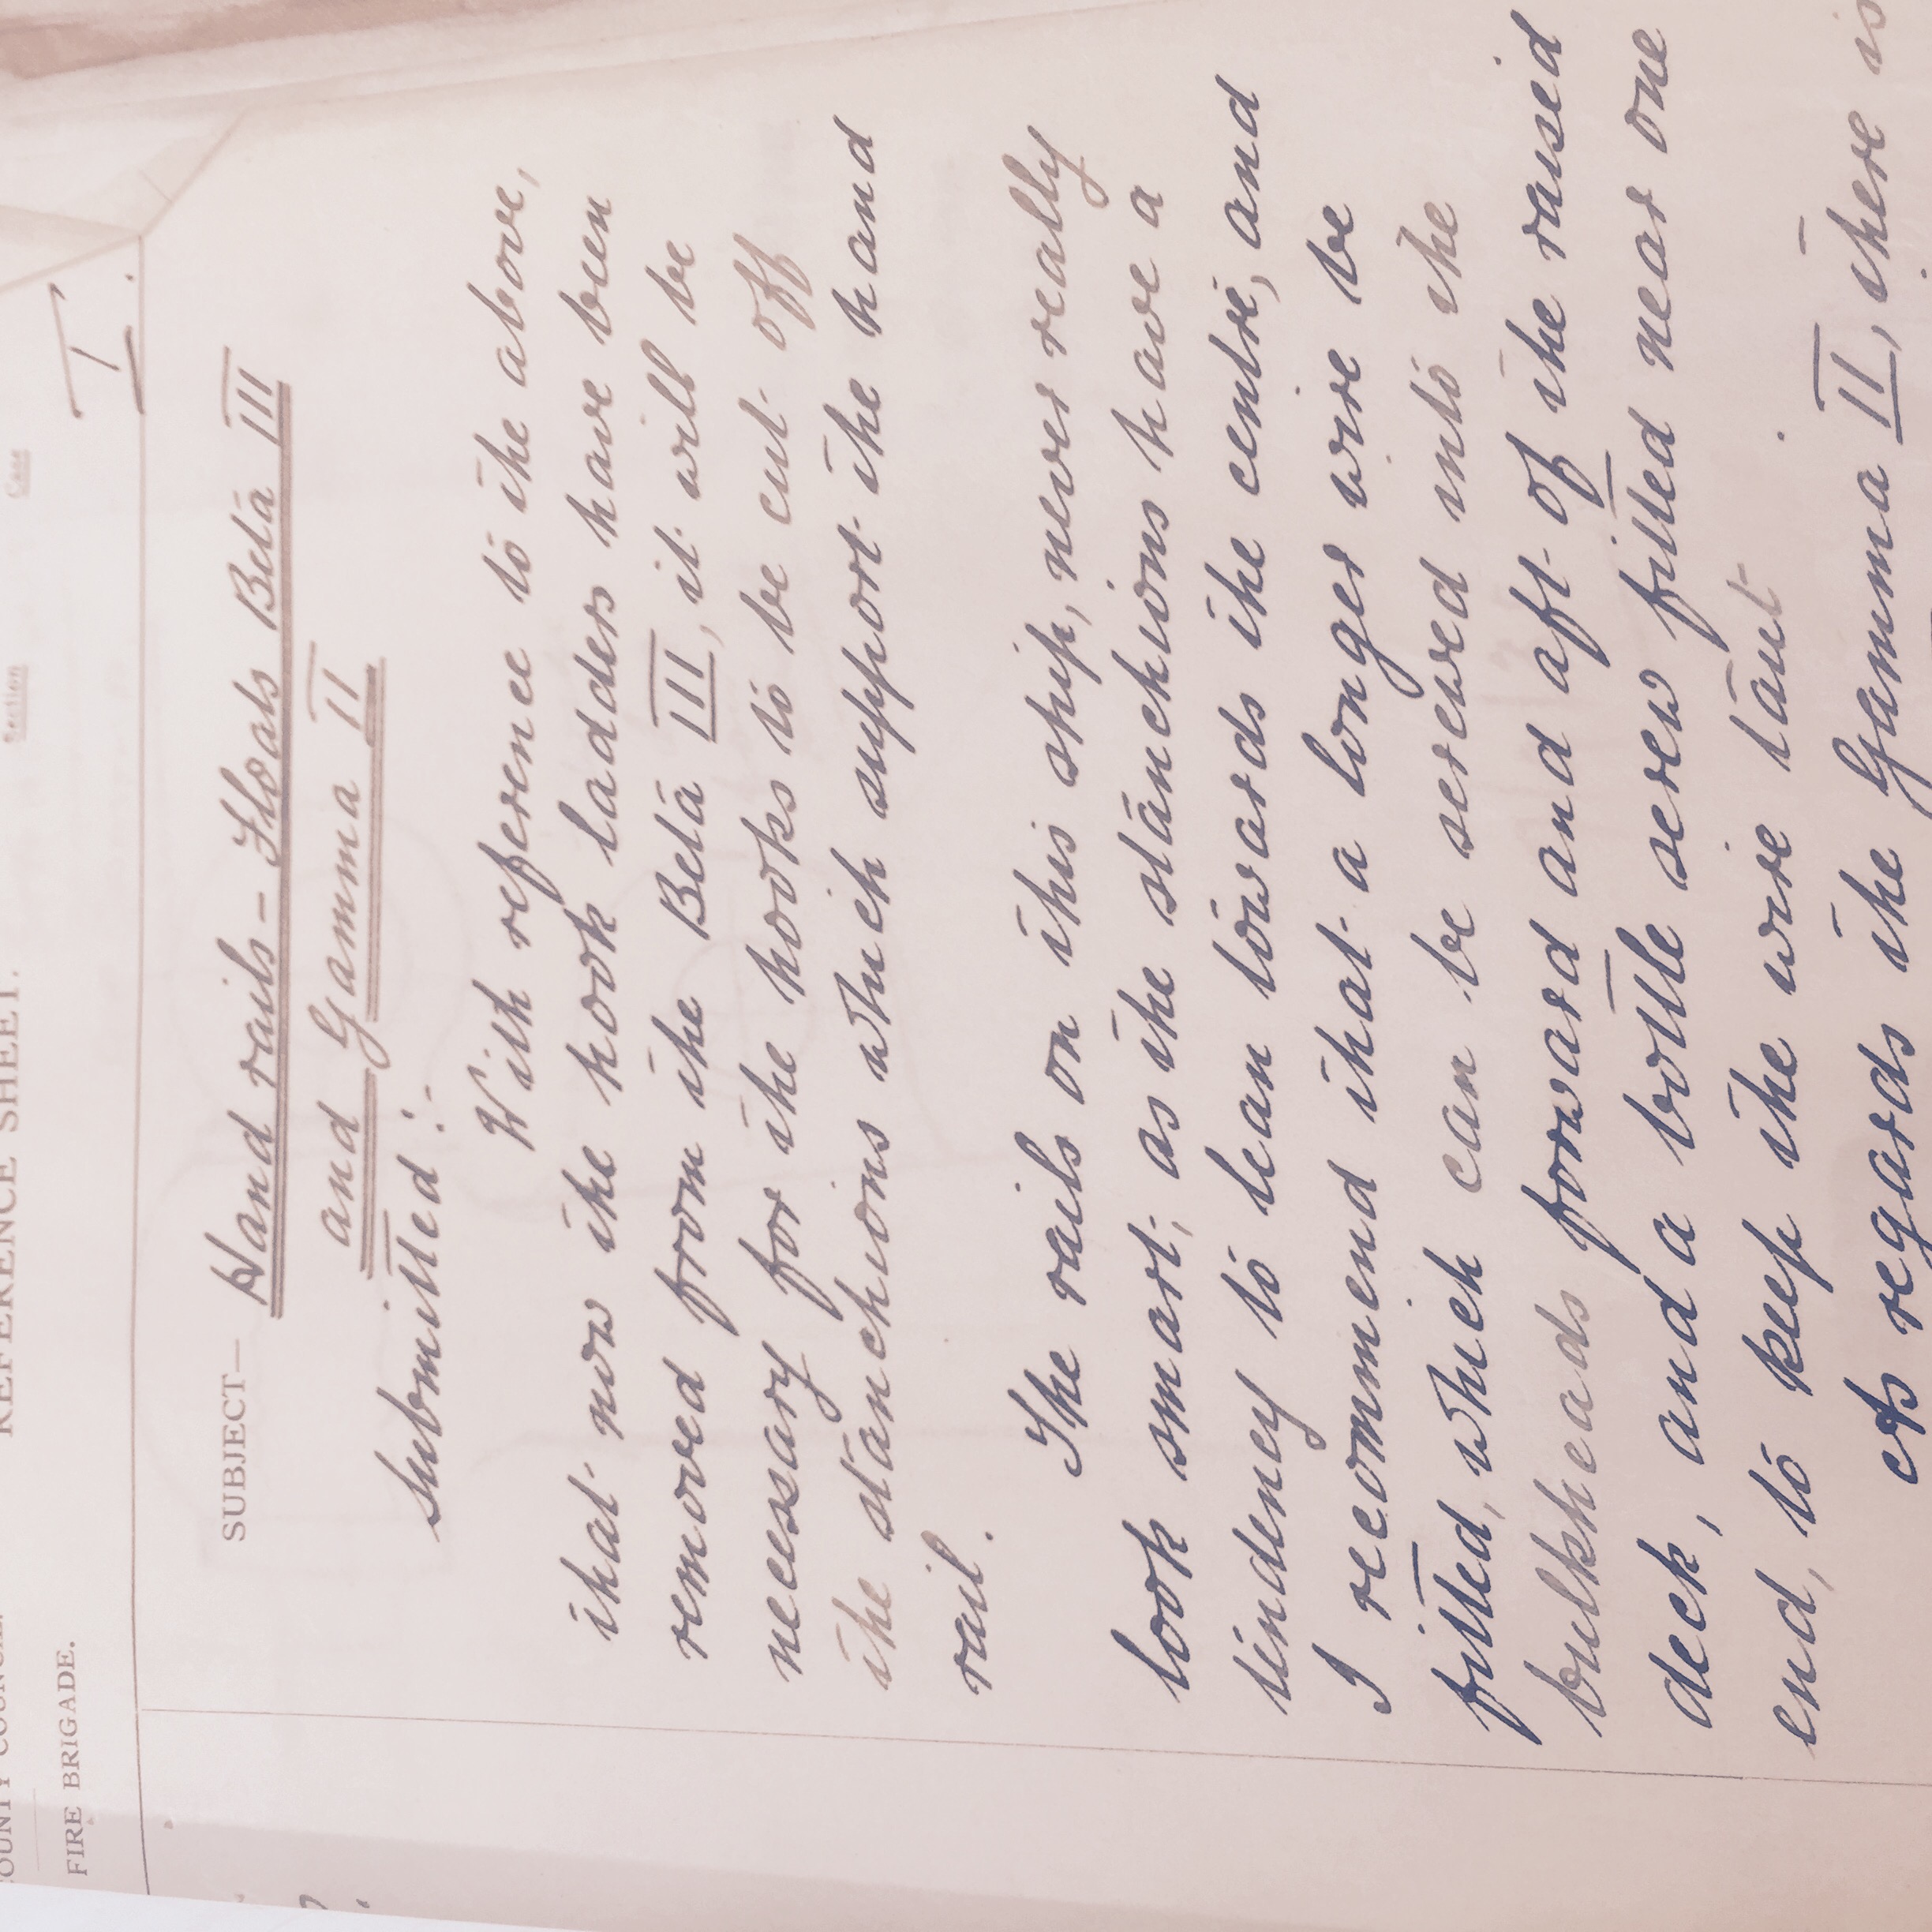 COUNTY COUNCIL
REFERENCE SHEET.
FIRE BRIGADE.
Section Case
I.
SUBJECT— Hand rails - Floats Beta III
and Gamma II
Submitted :-
With reference to the above,
that now the hook ladders have been
removed from the Beta III, it will be
necessary for the hooks to be cut off
the stanchions which support the hand
rail.
The rails on this ship, never really
look smart, as the stanchions have a
tendency to lean towards the centre, and
I recommend that a longer wire be
fitted, which can be screwed into the
bulkheads forward and aft of the raised
deck, and a bottle screw fitted near one
end, to keep the wire taut.
As regards the Gamma II, there is